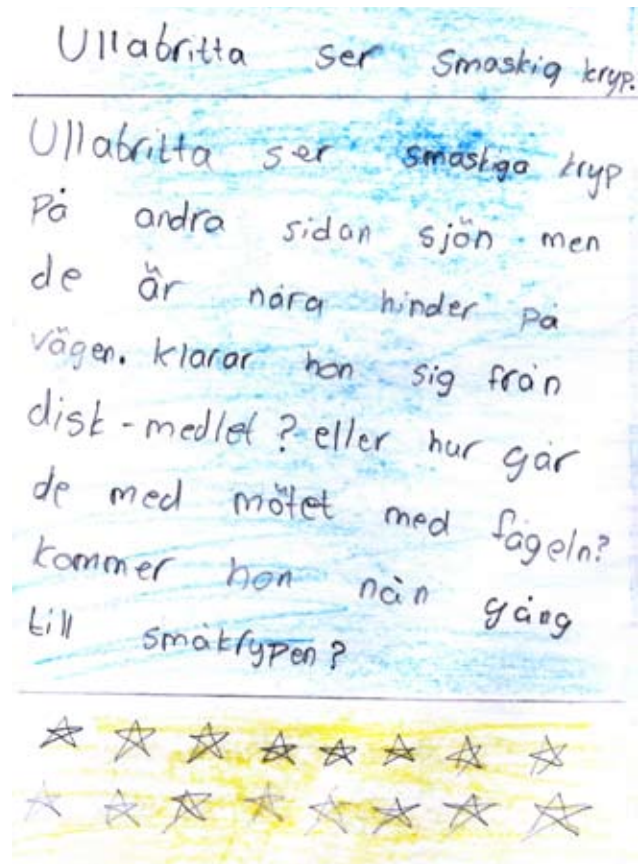 Ullabritta ser smaskig kryp.
Ullabritta ser smaskiga kryp
På andra sidan sjön men
de är nåra hinder på
vägen. klarar hon sig från
disk-medlet? eller hur går
de med mötet med fågeln?
kommer hon nån gång
till småkrypen?